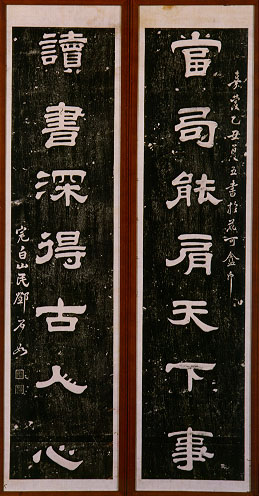 當局能肩天下事
嘉慶乙丑夏五書於
讀書深得古人心
完白山民鄧石如